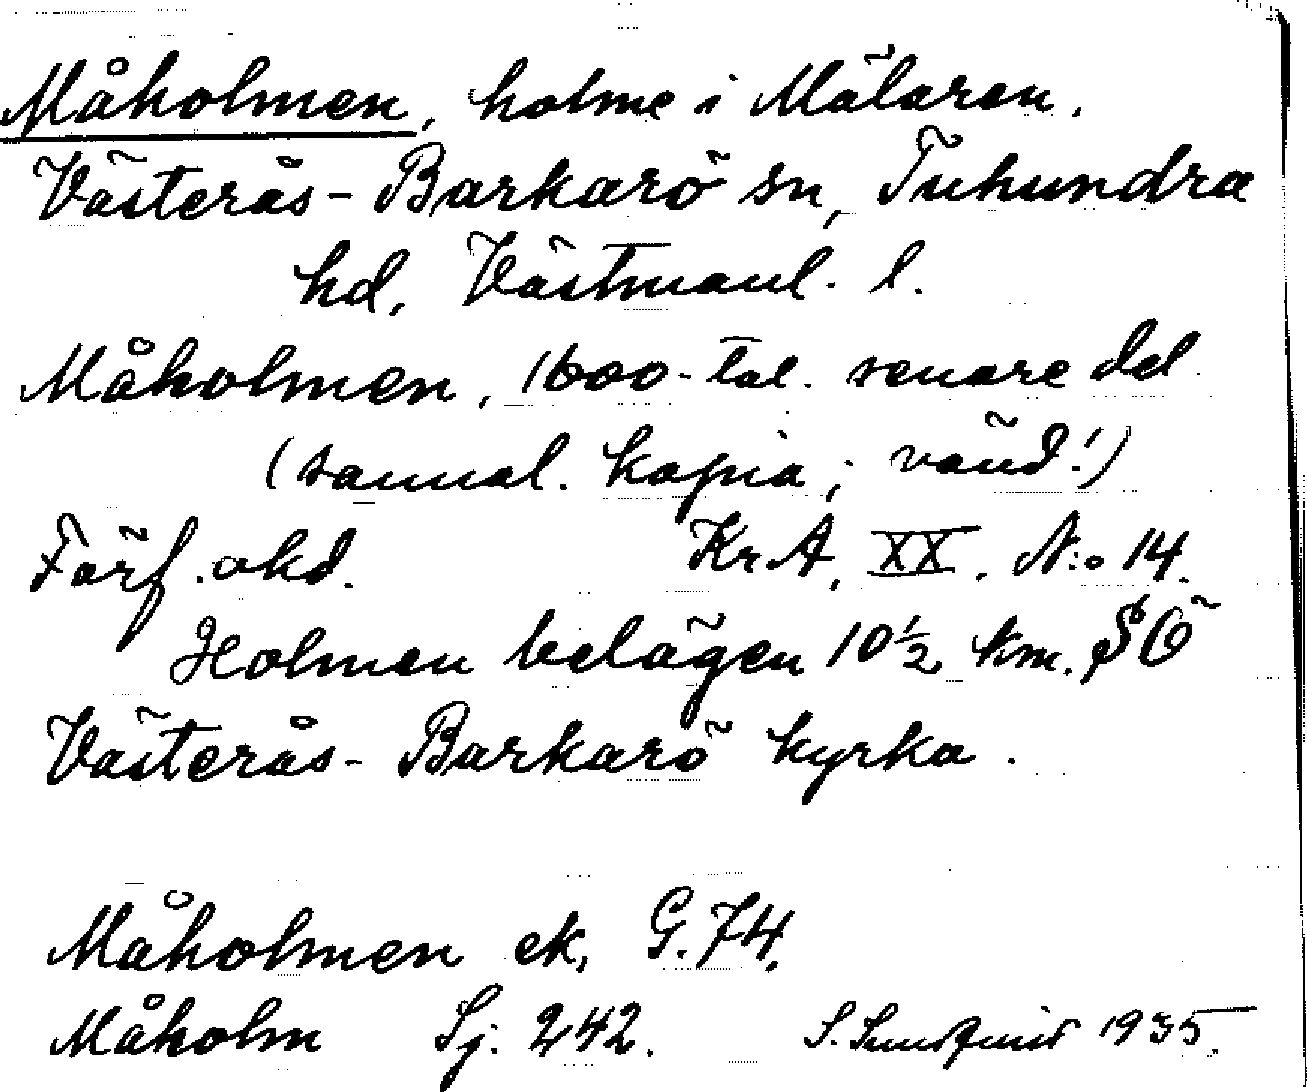 Måholmen, holme i Mälaren.
Västerås-Barkarö sn, Tuhundra
hd, Västmanl. l.
Måholmen, 1600-tal. senare del
(samml. kopia; vänd!)
Förf. okd. KrA, XX, N:o 14.
Holmen belägen 10½ km. SÖ
Västerås-Barkarö kyrka.
Måholmen ek, G. 74.
Måholm Sj. 242. S. Sundqvist 1935.